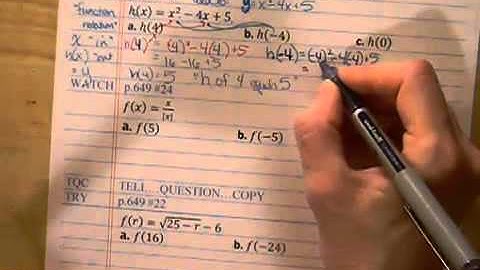 y = x² - 4x + 5
"function notation"
h(x) = x² - 4x + 5
a. h(4) b. h(-4) c. h(0)
x "in"
h(4) = (4)² - 4(4) + 5
h(-4) = (-4)² - 4(4) + 5
h(x) out
= 16 - 16 + 5
=
= y
h(4) = 5 "h of 4 equals 5"
WATCH p.649 #24
f(x) = x/|x|
a. f(5) b. f(-5)
TQC TELL QUESTION...COPY
TRY p.649 #22
f(r) = √25 - r - 6
a. f(16) b. f(-24)